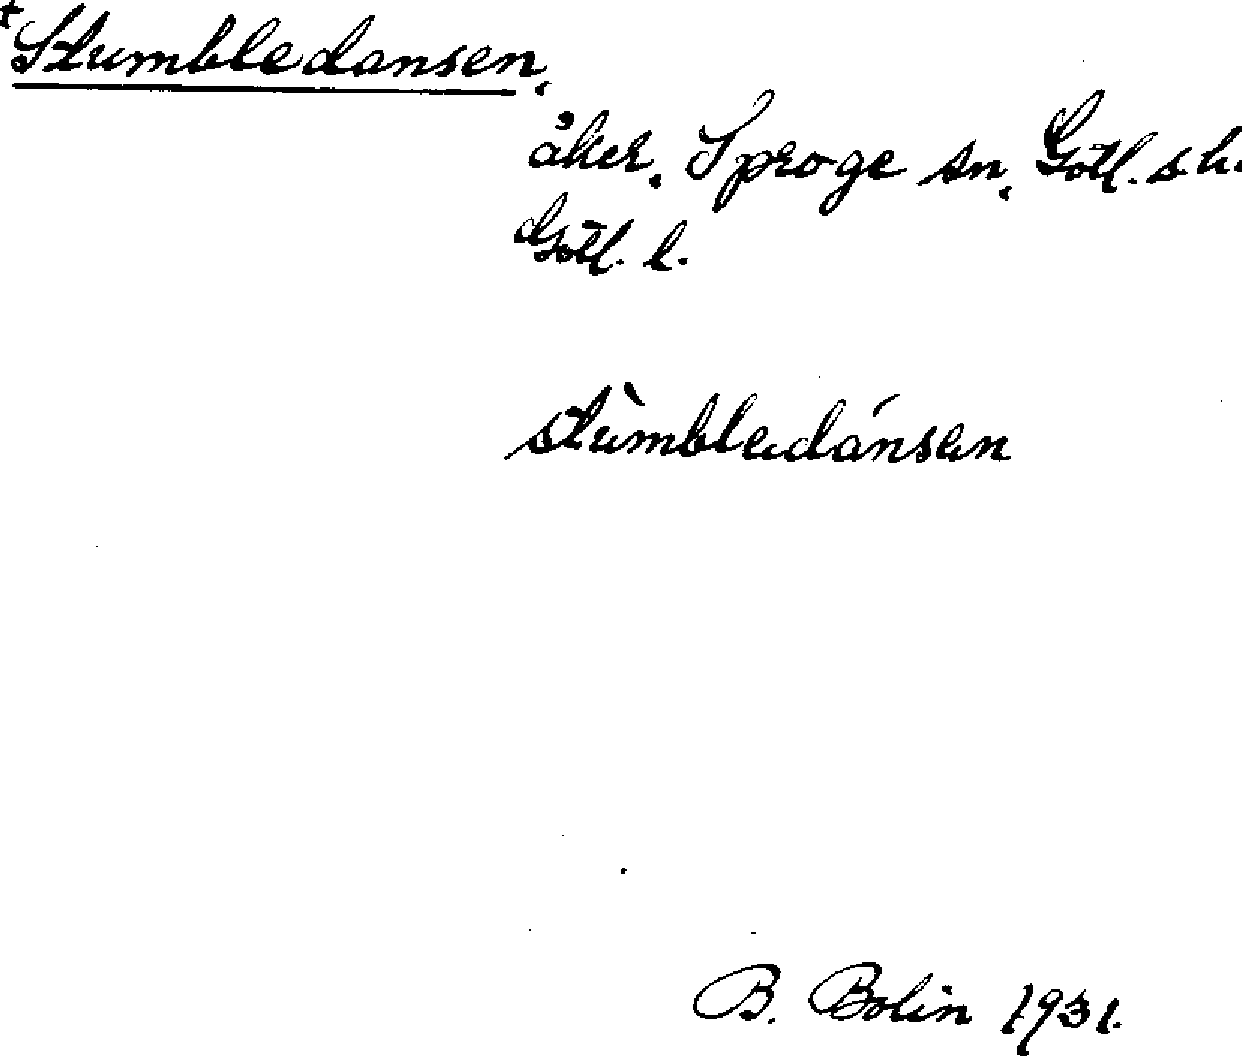 +Stumbledansen,
åker, Sproge sn, Gotl. s. h.
Gotl. l.
stùmbledánsen
B. Bolin 1931.